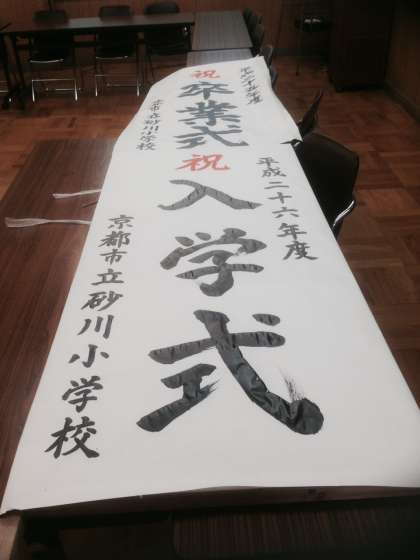 平成二十六年度
祝 入学式
京都市立砂川小学校
平成二十五年度
祝 卒業式
京都市立砂川小学校